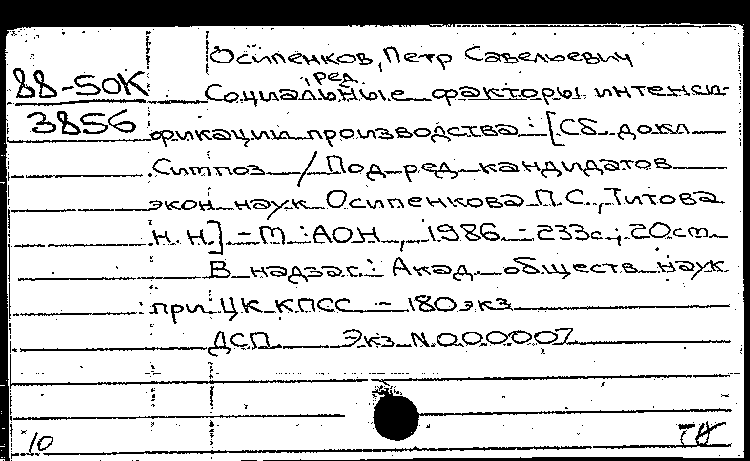 Осипенков, Петр Савельевич
, ред.
88-50К
Социальные факторы интенси-
3856
фикации производства : [Сб. докл.
Симпоз. / Под ред. кандидатов
экон. наук Осипенкова П.С., Титова
Н.Н.] - М. : АОН, 1986. - 233с.; 20см.
В надзаг.: Акад. обществ. наук
при ЦК КПСС - 180 экз
ДСП Экз. N.000007
10